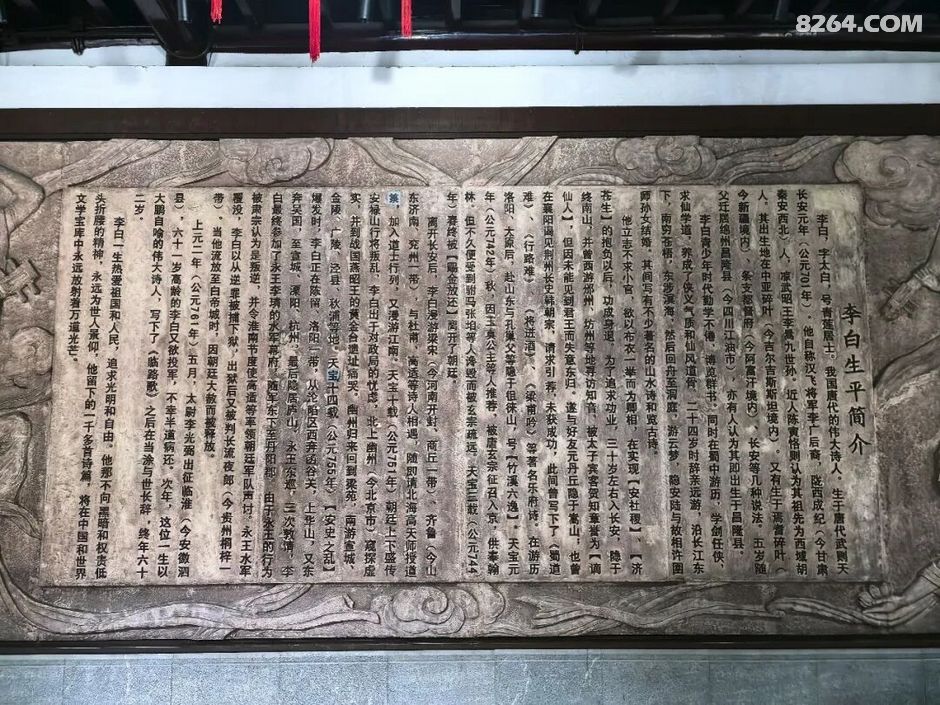 8264.COM
李白生平简介
李白，字太白，号青莲居士。我国唐代的伟大诗人。生于唐代武则天
长安元年（公元701年）。他自称汉飞将军李广后裔，陇西成纪（今甘肃
秦安西北）人，凉武昭王李暠九世孙。近人陈寅恪则认为其祖先为西域胡
人，其出生地在中亚碎叶（今吉尔吉斯斯坦境内）。又有生于焉耆碎叶（
今新疆境内）、条支都督府（今阿富汗境内）、长安等几种说法。五岁随
父迁居绵州昌隆县（今四川江油市），亦有人认为其即出生于昌隆县。
李白青少年时代勤学不倦、博览群书，同时在蜀中游历，学剑任侠、
求仙学道，养成了侠义气质和仙风道骨。二十四岁时辞亲远游，沿长江东
下，南穷苍梧、东涉溟海，然后回舟至洞庭，游云梦，隐安陆与故相许圉
师孙女结婚，其间写有不少著名的山水诗和览古诗。
他立志不求小官，欲以布衣一举而为卿相，在实现【安社稷】、【济
苍生】的抱负以后，功成身退。为了追求功业，三十岁左右入长安，隐于
终南山，并曾西游邠州、坊州等地寻访知音，被太子宾客贺知章誉为【谪
仙人】，但因未能见到君王而失意东归。遂与好友元丹丘隐于嵩山，也曾
在襄阳谒见荆州长史韩朝宗，请求引荐，未获成功，此间曾写下了《蜀道
难》、《行路难》、《将进酒》、《梁甫吟》等著名乐府诗。在游历
洛阳、太原后，赴山东与孔巢父等隐于徂徕山，号【竹溪六逸】。天宝元
年（公元742年）秋，因玉真公主等人推荐，被唐玄宗征召入京，供奉翰
林，但不久便受到驸马张垍等人谗毁而被玄宗疏远。天宝三载（公元744
年）春终被【赐金放还】离开了朝廷。
离开长安后，李白漫游梁宋（今河南开封、商丘一带）、齐鲁（今山
东济南、兖州一带），与杜甫、高适等诗人相遇。随即请北海高天师授道
箓，加入道士行列，又漫游江南。天宝十载（公元751年）朝廷上下盛传
安禄山行将叛乱，李白出于对政局的忧虑，北上幽州（今北京市）窥探虚
实，并到战国燕昭王的黄金台遗址痛哭。幽州归来回到梁苑，南游宣城、
金陵、广陵、泾县、秋浦等地。天宝十四载（公元755年）【安史之乱】
爆发时，李白正在陈留、洛阳一带，从沦陷区西奔函谷关，上华山，又东
奔吴国，至宣城、溧阳、杭州，最后隐居庐山。永王东巡，三次敦请，李
白最终参加了永王李璘的水军幕府，随军东下至丹阳郡。由于永王的行为
被肃宗认为是叛逆，并令淮南节度使高适等率领朝廷军队声讨，永王水军
覆没，李白以从逆罪被捕下狱，出狱后又被判长流夜郎（今贵州桐梓一
带），当他流放至白帝城时，因朝廷大赦而被释放。
上元二年（公元761年）五月，太尉李光弼出征临淮（今安徽泗
县），六十一岁高龄的李白又欲投军，不幸半道病还。次年，这位一生以
大鹏自喻的伟大诗人，写下了《临路歌》之后在当涂与世长辞，终年六十
二岁。
李白一生热爱祖国和人民，追求光明和自由。他那不向黑暗和权贵低
头折腰的精神，永远为世人景仰，他留下的一千多首诗篇，将在中国和世界
文学宝库中永远放射着万道光芒。